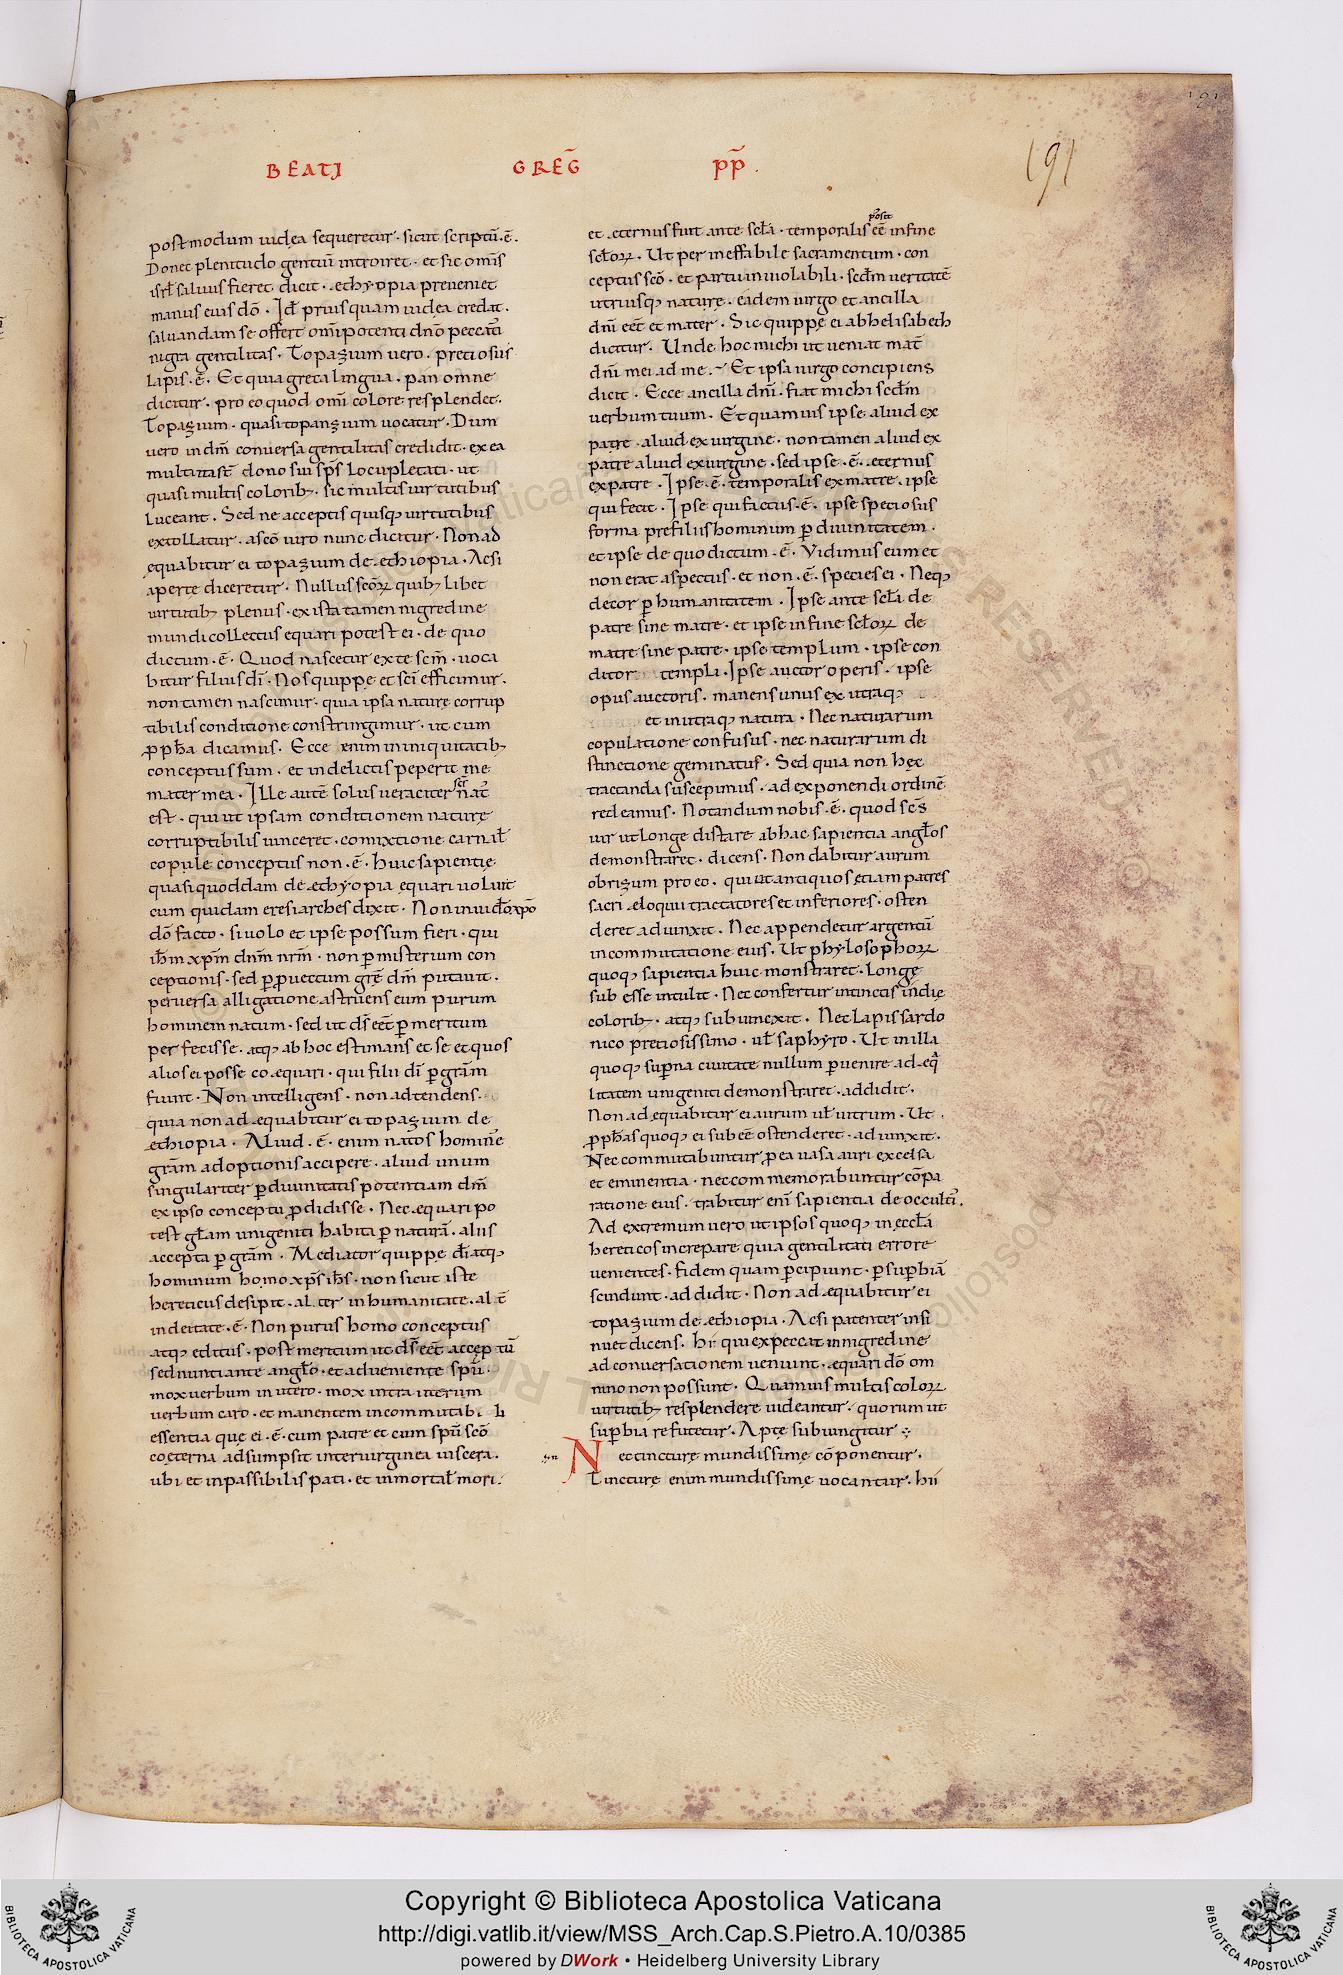 191
BEATI GREḠ PP̄.
191
postmodum iudea sequeretur · sicut scriptū · ē ·
Donec plenitudo gentiū introiret · et sic om̄is
isrł saluus fieret dicit · ęthyopia preueniet
manus eius dō · Id ē priusquam iudea credat ·
saluandam se offert om̄ipotenti dn̄o peccatī
nigra gentilitas · Topazium uero · preciosus
lapis · ē · Et quia greca lingua · pan omne
dicitur · pro eo quod om̄i colore resplendet ·
Topazium · quasi topanzium uocatur · Dum
uero in dm̄ conuersa gentilitas credidit · ex ea
multi tast̄ dono sui sp̄s locupletati · ut
quasi multis colorib; · sic multis uirtutibus
luceant · Sed ne acceptis quisq; uirtutibus
extollatur · a scō uiro nunc dicitur · Non ad
ęquabitur ei topazium de ęthiopia · Ac si
aperte diceretur · Nullus scōꝝ quib; libet
uirtutib; plenus · ex ista tamen nigredine
mundi collectus equari potest ei · de quo
dictum · ē · Quod nascetur ex te scm̄ · uoca
bitur filius dī · Nos quippe et scī efficimur ·
non tamen nascimur · quia ipsa naturę corrup
tibilis conditione constringimur · ut cum
ꝓpħa dicamus · Ecce enim in iniquitatib;
conceptus sum · et in delictis peperit me
mater mea · Ille autē solus ueraciter scs̄ nat̄
est · qui ut ipsam conditionem naturę
corruptibilis uinceret · comixtione carnal̄
copulę conceptus non · ē · Huic sapientię
quasi quoddam de ęthyopia ęquari uoluit
cum quidam eresiarches dixit · Non inuideo xp̄o
dō facto · si uolo et ipse possum fieri · qui
iħm xp̄m dn̄m nr̄m · non ꝑ misterium con
ceptionis · sed ꝑ ꝓuectum grē dm̄ putauit ·
peruersa alligatione astruens eum purum
hominem natum · sed ut ds̄ eēt ꝑ meritum
perfecisse · atq; ab hoc estimans et se et quos
alios ei posse coęquari · qui filii dī ꝑ grām
fiunt · Non intelligens · non adtendens ·
quia non adęquabitur ei topazium de
ęthiopia · Aliud · ē · enim natos hominē
grām adoptionis accipere · aliud unum
singulariter ꝑ diuinitatis potentiam dm̄
ex ipso conceptu ꝓdidisse · Nec ęquari po
test głam unigeniti habita ꝑ naturā · aliis
accepta ꝑ grām · Mediator quippe dī atq;
hominum homo xp̄s iħs · non sicut iste
hereticus desipit · alter in humanitate · alt̄
in deitate · ē · Non purus homo conceptus
atq; editus · post meritum ut ds̄ eēt acceptū
sed nuntiante angło · et adueniente spū ·
mox uerbum in utero · mox intra uterum
uerbum caro · et manentem incommutabili
essentia que ei · ē · cum patre et cum spū scō
coęterna adsumpsit inter uirginea uiscera ·
ubi et inpassibilis pati · et inmortał mori ·
posset
et ęternus fuit ante scła · temporalis eē in fine
scłoꝝ · Ut per ineffabile sacramentum · con
ceptus scō · et partu inuiolabili · scdm̄ ueritatē
utriusq; naturę · eadem uirgo et ancilla
dn̄i eēt et mater · Sic quippe ei ab helisabeth
dicitur · Unde hoc michi ut ueniat mat̄
dn̄i mei ad me · Et ipsa uirgo concipiens
dicit · Ecce ancilla dn̄i · fiat michi scdm̄
uerbum tuum · Et quamuis ipse aliud ex
patre · aliud ex uirgine · non tamen alius ex
patre alius ex uirgine · sed ipse · ē · ęternus
ex patre · Ipse · ē · temporalis ex matre · ipse
qui fecit · Ipse qui factus · ē · ipse speciosus
forma pre filiis hominum ꝑ diuinitatem ·
et ipse de quo dictum · ē · Vidimus eum et
non erat aspectus · et non · ē · species ei · Neq;
decor ꝑ humanitatem · Ipse ante scła de
patre sine matre · et ipse in fine scłoꝝ de
matre sine patre · ipse templum · ipse con
ditor templi · Ipse auctor operis · ipse
opus auctoris · manens unus ex utraq;
et in utraq; natura · Nec naturarum
copulatione confusus · nec naturarum di
stinctione geminatus · Sed quia non hęc
tractanda suscepimus · ad exponendi ordinē
redeamus · Notandum nobis · ē · quod scs̄
uir ut longe distare ab hac sapientia angłos
demonstraret · dicens · Non dabitur aurum
obrizum pro eo · qui ut antiquos etiam patres
sacri ęloquii tractatores et inferiores · osten
deret adiunxit · Nec appendetur argentū
in commutatione eius · Ut phylosophoꝝ
quoq; sapientia huic monstraret · longe
sub esse intulit · Nec confertur intinctis indię
colorib; · atq; subiunexit · Nec lapis sardo
nico pretiosissimo · uł saphyro · Ut in illa
quoq; suꝑna ciuitate nullum ꝑuenire ad ęq̄
litatem unigeniti demonstraret · addidit ·
Non adęquabitur ei aurum uł uitrum · Ut ·
ꝓpħas quoq; ei sub eē ostenderet · adiunxit ·
Nec commutabuntur ꝑ ea uasa auri excelsa
et eminentia · nec commemorabuntur cōpa
ratione eius · trabitur enī sapientia de occultī ·
Ad extremum uero ut ipsos quoq; in eccłia
hereticos increpare quia gentilitati errore
uenientes · fidem quam ꝑcipiunt · ꝑ suꝑbiā
scindunt · addidit · Non adęquabitur ei
topazium de ęthiopia · Ac si patenter insi
nuet dicens · Hi qui ex peccati nigredine
ad conuersationem ueniunt · ęquari dō om
nino non possunt · Quamuis multis coloꝝ
uirtutib; resplendere uideantur · quorum ut
suꝑbia refutetur · Apte subiungitur ·
Nec tincturę mundissimę cōponentur ·
Tincturę enim mundissimę uocantur · hii
Copyright © Biblioteca Apostolica Vaticana
http://digi.vatlib.it/view/MSS_Arch.Cap.S.Pietro.A.10/0385
powered by DWork • Heidelberg University Library
BIBLIOTECA APOSTOLICA VATICANA
BIBLIOTECA APOSTOLICA VATICANA